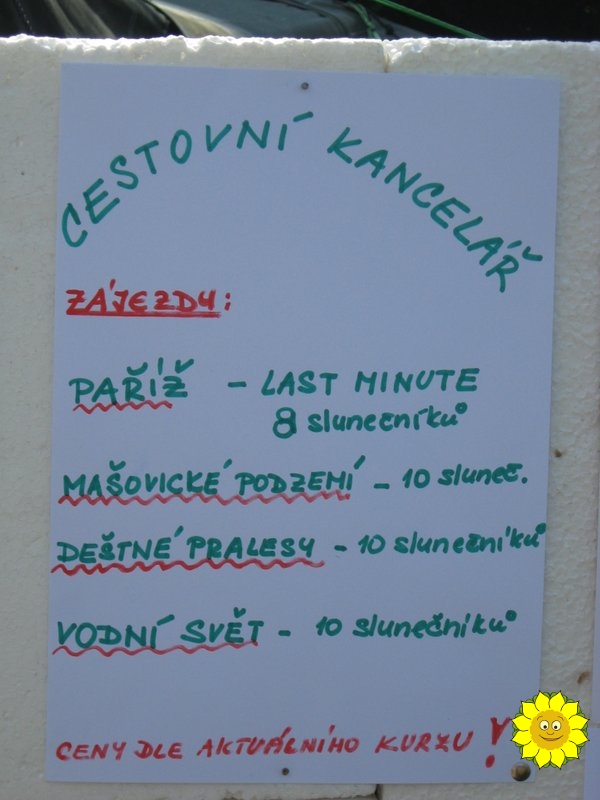 CESTOVNÍ KANCELÁŘ
ZÁJEZDY:
PAŘÍŽ - LAST MINUTE
8 slunečníků
MAŠOVICKÉ PODZEMÍ - 10 sluneč.
DEŠTNÉ PRALESY - 10 slunečníků
VODNÍ SVĚT - 10 slunečníků
CENY DLE AKTUÁLNÍHO KURZU!